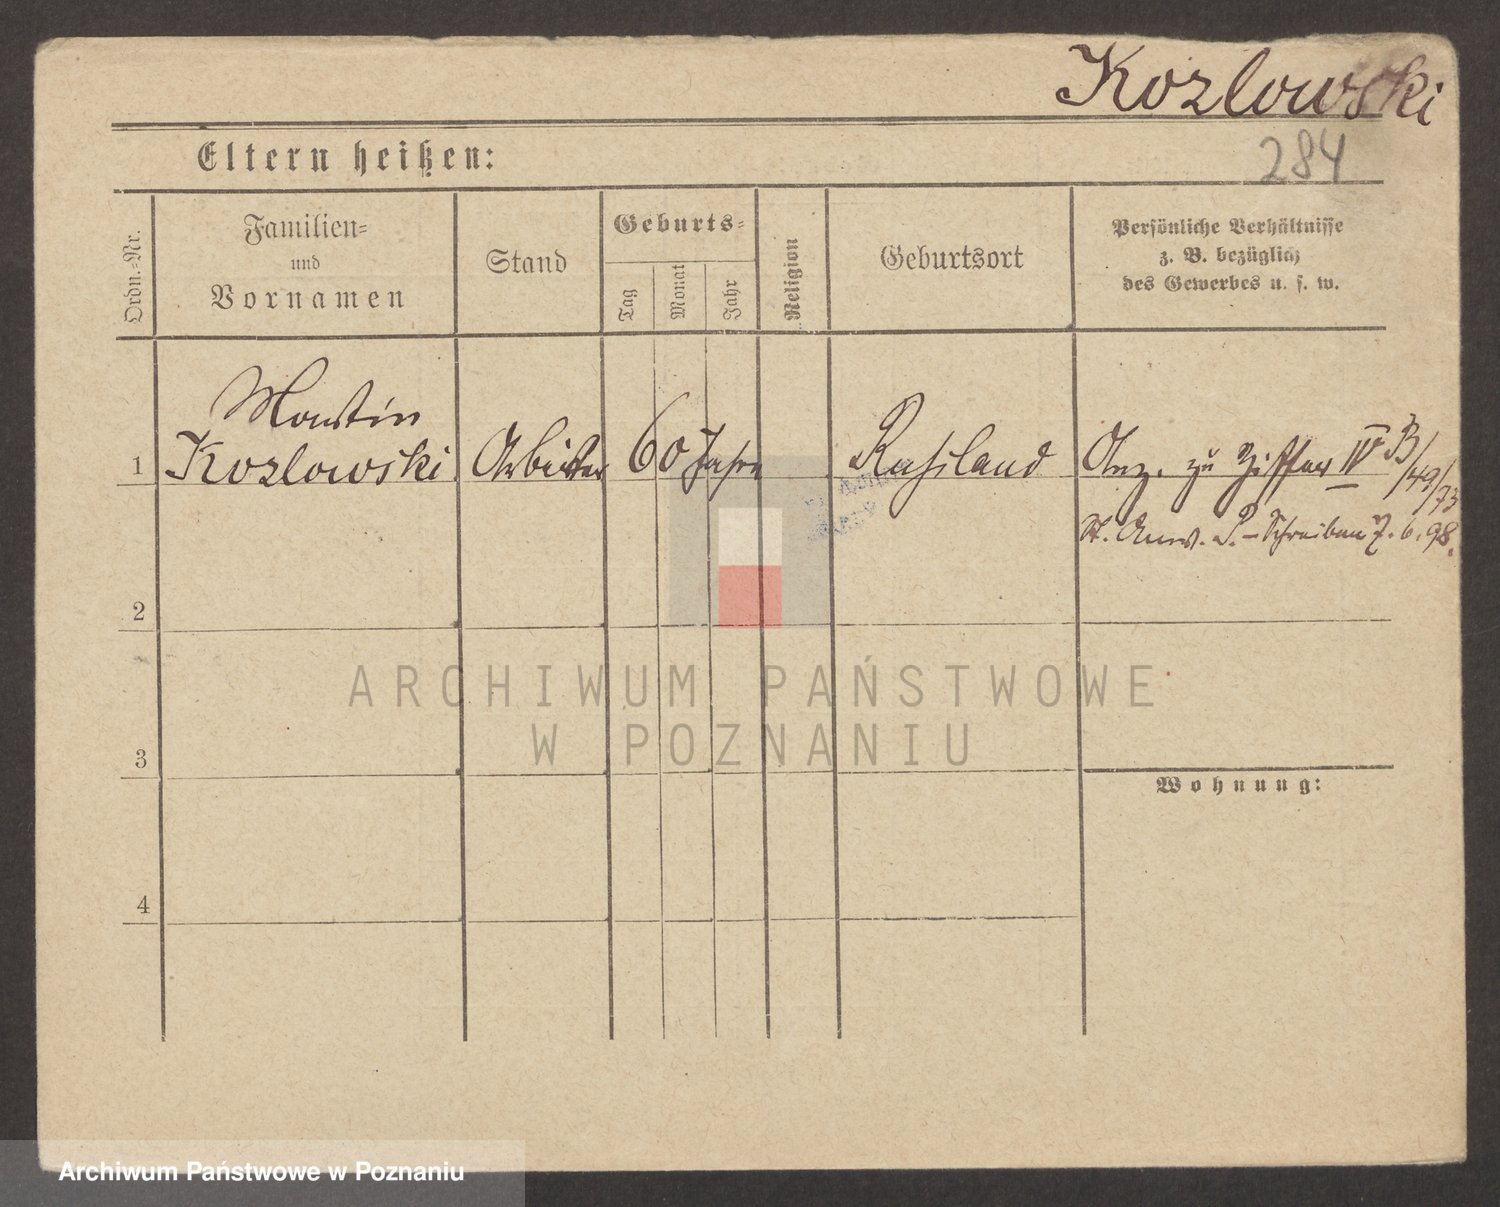 Kozlowski
284
Eltern heißen:
Ordn.=Nr.
Familien=
und
Vornamen
Stand
Geburts=
Tag
Monat
Jahr
Religion
Geburtsort
Persönliche Verhältnisse
z. B. bezüglich
des Gewerbes u. s. w.
1
Martin
Kozlowski
Arbeiter
60 Jahre
Rußland
Anz. zu Ziffer IV B/149/73
St. Anw. P.-Schreiben 7. 6. 98.
2
3
Wohnung:
4
ARCHIWUM PAŃSTWOWE
W POZNANIU
Archiwum Państwowe w Poznaniu